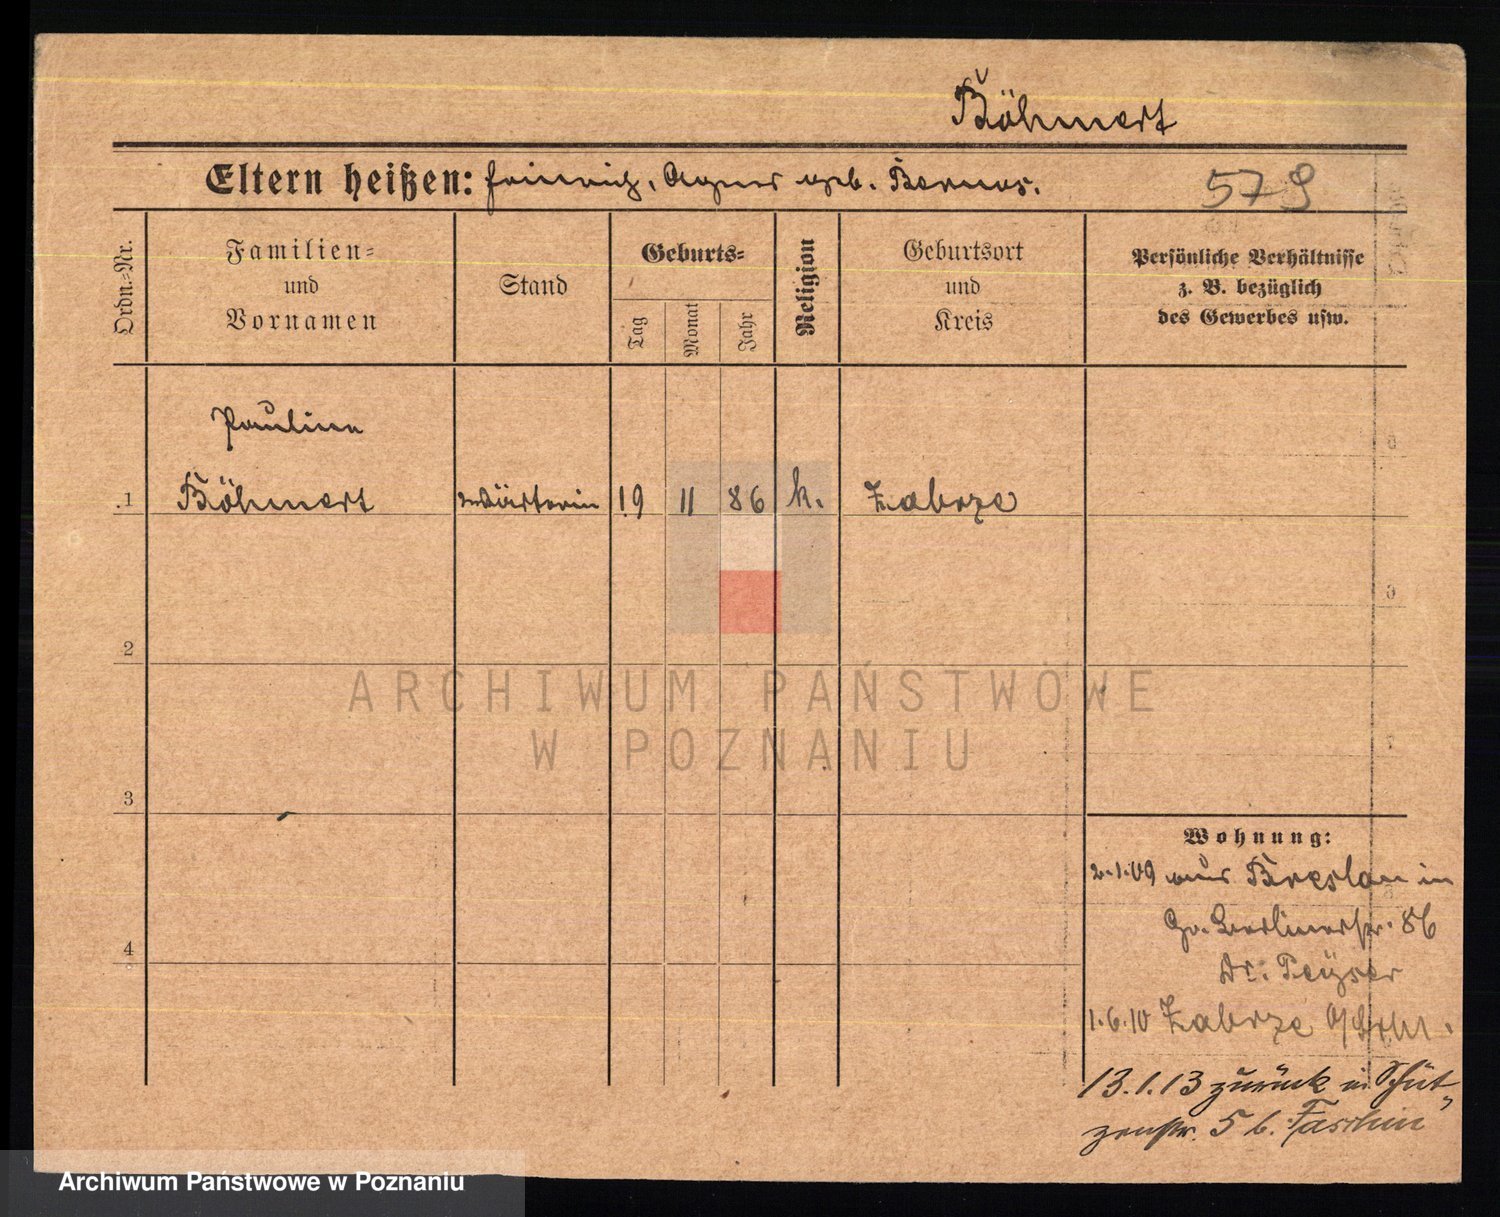 Böhmert
Eltern heißen: Heinrich, Agnes geb. Bernas.
579
Ordn.=Nr.
Familien=
und
Vornamen
Stand
Geburts=
Tag
Monat
Jahr
Religion
Geburtsort
und
Kreis
Persönliche Verhältnisse
z. B. bezüglich
des Gewerbes usw.
Pauline
1 Böhmert Wärterin 19 11 86 k. Zabrze
2
3
4
ARCHIWUM PAŃSTWOWE
W POZNANIU
Wohnung:
2.1.09 aus Breslau in
Gr. Berlinerstr. 86
Dr. Peyser
1.6.10 Zabrze O/Schl.
13.1.13 zurück in Schüt-
zenstr. 5 b.
Archiwum Państwowe w Poznaniu